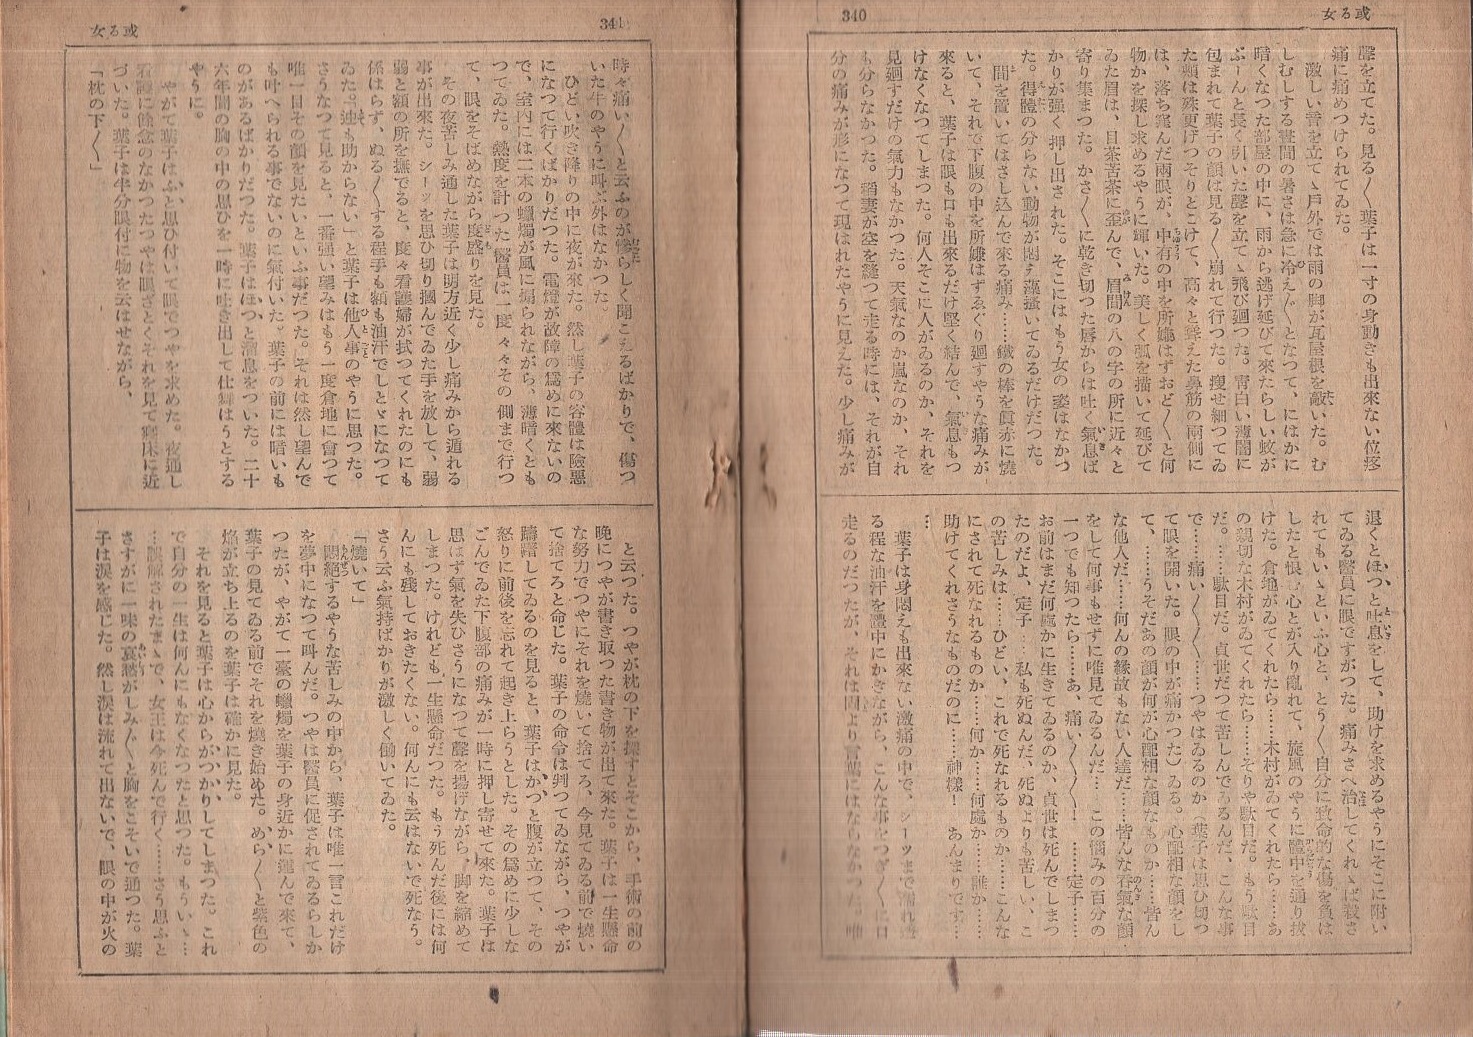 340
或る女
聲を立てた。見る〱葉子は一寸の身動きも出來ない位疼
痛に痛めつけられてゐた。
激しい音を立てゝ戶外では雨の脚が瓦屋根を敲いた。む
しむしする晝間の暑さは急に冷え〲となつて、にはかに
暗くなつた部屋の中に、雨から逃げ延びて來たらしい蚊が
ぶーんと長く引いた聲を立てゝ飛び廻つた。靑白い薄闇に
包まれて葉子の顏は見る〱崩れて行つた。瘦せ細つてゐ
た頰は殊更げつそりとこけて、高々と聳えた鼻筋の兩側に
は、落ち窪んだ兩眼が、中有の中を所嫌はずおど〱と何
物かを探し求めるやうに輝いた。美しく弧を描いて延びて
ゐた眉は、目茶苦茶に歪んで、眉間の八の字の所に近々と
寄り集まつた。かさ〱に乾き切つた唇からは吐く氣息ば
かりが强く押し出された。そこにはもう女の姿はなかつ
た。得體の分らない動物が悶え藻搔いてゐるだけだつた。
間を置いてはさし込んで來る痛み……鐵の棒を眞赤に燒
いて、それで下腹の中を所嫌はずゑぐり廻すやうな痛みが
來ると、葉子は眼も口も出來るだけ堅く結んで、氣息もつ
けなくなつてしまつた。何人そこに人がゐるのか、それを
見廻すだけの氣力もなかつた。天氣なのか嵐なのか、それ
も分らなかつた。稻妻が空を縫つて走る時には、それが自
分の痛みが形になつて現はれたやうに見えた。少し痛みが
退くとほつと吐息をして、助けを求めるやうにそこに附い
てゐる醫員に眼ですがつた。痛みさへ治してくれゝば殺さ
れてもいゝといふ心と、とう〱自分に致命的な傷を負は
したと恨む心とが入り亂れて、旋風のやうに體中を通り拔
けた。倉地がゐてくれたら……木村がゐてくれたら……あ
の親切な木村がゐてくれたら……そりや駄目だ。もう駄目
だ。……駄目だ。貞世だつて苦しんでゐるんだ、こんな事
で……痛い〱〱……つやはゐるのか(葉子は思ひ切つ
て眼を開いた。眼の中が痛かつた)ゐる。心配相な顏をし
て、……うそだあの顏が何が心配相な顏なものか……皆ん
な他人だ……何んの緣故もない人達だ……皆んな吞氣な顏
をして何事もせずに唯見てゐるんだ……この惱みの百分の
一つでも知つたら……あ、痛い〱〱!……定子……
お前はまだ何處かに生きてゐるのか、貞世は死んでしまつ
たのだよ、定子……私も死ぬんだ、死ぬよりも苦しい、こ
の苦しみは……ひどい、これで死なれるものか……こんな
にされて死なれるものか……何か……何處か……誰か……
助けてくれさうなものだのに……神樣! あんまりです…
…
葉子は身悶えも出來ない激痛の中で、シーツまで濡れ透
る程な油汗を體中にかきながら、こんな事をつぎ〱に口
走るのだつたが、それは固より言葉にはならなかつた。唯
341
或る女
時々痛い〱と云ふのが慘らしく聞こえるばかりで、傷つ
いた牛のやうに叫ぶ外はなかつた。
ひどい吹き降りの中に夜が來た。然し葉子の容體は險惡
になつて行くばかりだつた。電燈が故障の爲めに來ないの
で、室內には二本の蠟燭が風に煽られながら、薄暗くとも
つてゐた。熱度を計つた醫員は一度々々その側まで行つ
て、眼をそばめながら度盛りを見た。
その夜苦しみ通した葉子は明方近く少し痛みから遁れる
事が出來た。シーツを思ひ切り摑んでゐた手を放して、弱
弱と額の所を撫でると、度々看護婦が拭つてくれたのにも
係はらず、ぬる〱する程手も額も油汗でしとゞになつて
ゐた。「迚も助からない」と葉子は他人事のやうに思つた。
さうなつて見ると、一番强い望みはもう一度倉地に會つて
唯一目その顏を見たいといふ事だつた。それは然し望んで
も叶へられる事でないのに氣付いた。葉子の前には暗いも
のがあるばかりだつた。葉子はほつと溜息をついた。二十
六年間の胸の中の思ひを一時に吐き出して仕舞はうとする
やうに。
やがて葉子はふと思ひ付いて眼でつやを求めた。夜通し
看護に餘念のなかつたつやは眼ざとくそれを見て寢床に近
づいた。葉子は半分眼付に物を云はせながら、
「枕の下〱」
と云つた。つやが枕の下を探すとそこから、手術の前の
晩につやが書き取つた書き物が出て來た。葉子は一生懸命
な努力でつやにそれを燒いて捨てろ、今見てゐる前で燒い
て捨てろと命じた。葉子の命令は判つてゐながら、つやが
躊躇してゐるのを見ると、葉子はかつと腹が立つて、その
怒りに前後を忘れて起き上らうとした。その爲めに少しな
ごんでゐた下腹部の痛みが一時に押し寄せて來た。葉子は
思はず氣を失ひさうになつて聲を揚げながら、脚を縮めて
しまつた。けれども一生懸命だつた。もう死んだ後には何
んにも殘しておきたくない。何んにも云はないで死なう。
さう云ふ氣持ばかりが激しく働いてゐた。
「燒いて」
悶絕するやうな苦しみの中から、葉子は唯一言これだけ
を夢中になつて叫んだ。つやは醫員に促されてゐるらしか
つたが、やがて一臺の蠟燭を葉子の身近かに運んで來て、
葉子の見てゐる前でそれを燒き始めた。めら〱と紫色の
焰が立ち上るのを葉子は確かに見た。
それを見ると葉子は心からがつかりしてしまつた。これ
で自分の一生は何んにもなくなつたと思つた。もういゝ…
…誤解されたまゝで、女王は今死んで行く……さう思ふと
さすがに一味の哀愁がしみ〲と胸をこそいで通つた。葉
子は淚を感じた。然し淚は流れて出ないで、眼の中が火の